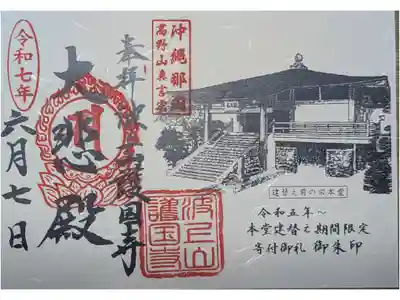 沖縄那覇
高野山真言宗
奉拝 波上山護国寺
大悲殿
令和七年
六月七日
波上山
護国寺
建替え前の旧本堂
令和五年~
本堂建替え期間限定
寄付御礼 御朱印